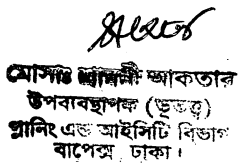 মোসাঃ আকতার
উপব্যবস্থাপক (ভূতত্ত্ব)
প্লানিং এন্ড আইসিটি বিভাগ
বাপেক্স ঢাকা।